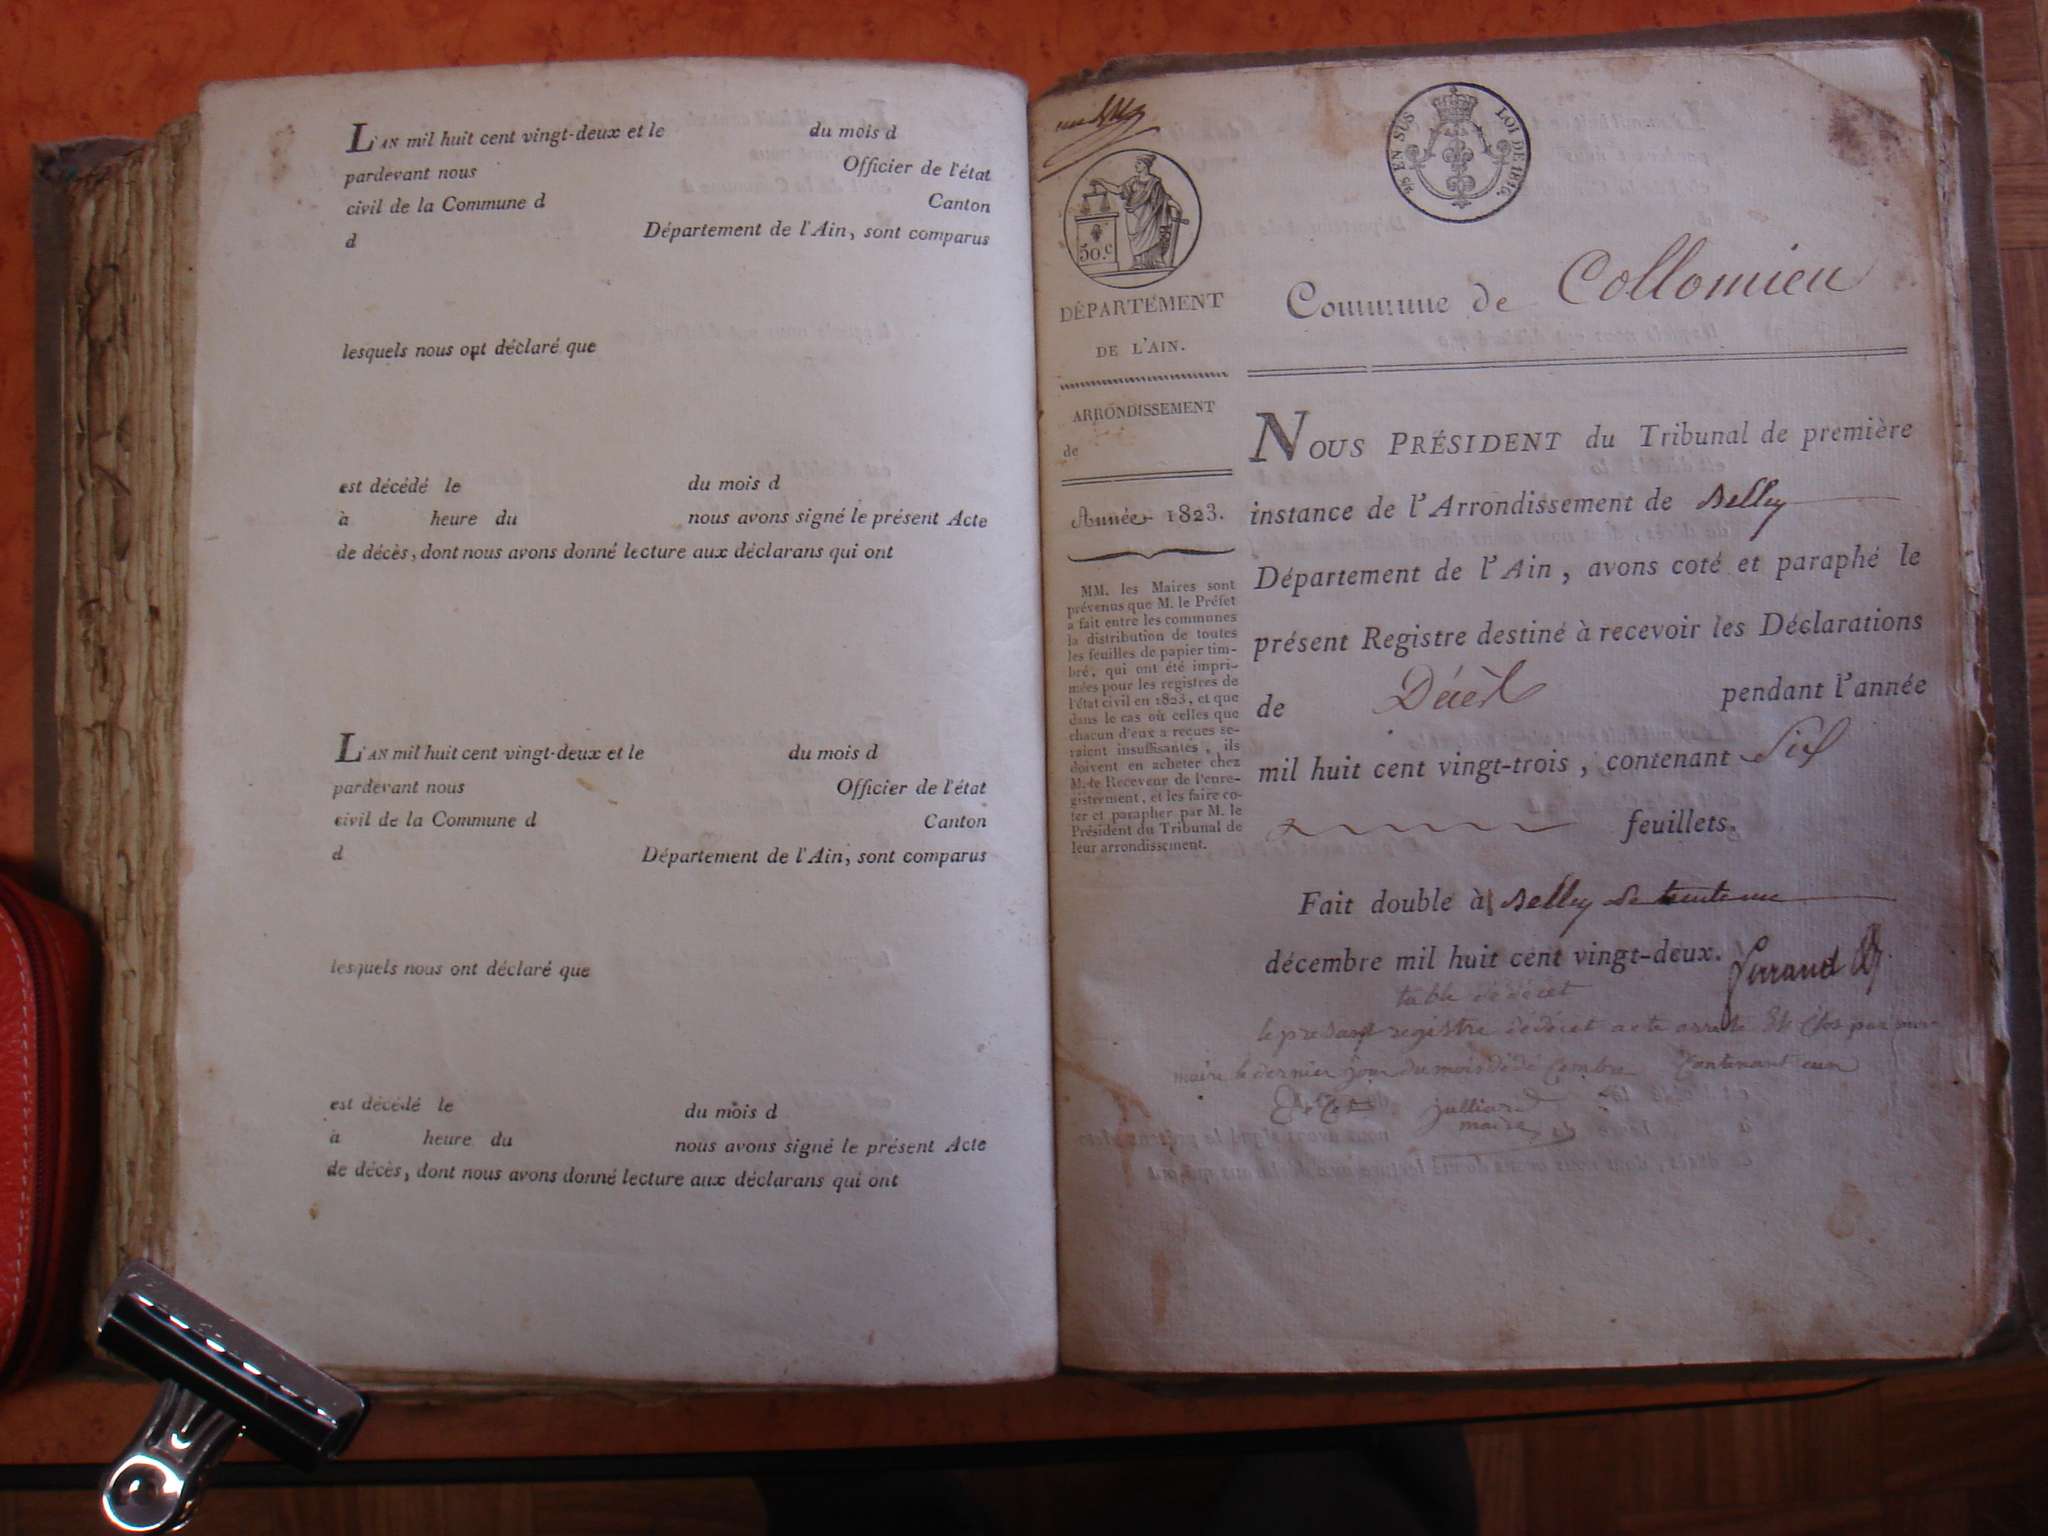 L'AN mil huit cent vingt-deux et le du mois d
pardevant nous Officier de l'état
civil de la Commune d Canton
d Département de l'Ain, sont comparus
lesquels nous ont déclaré que
est décédé le du mois d
à heure du nous avons signé le présent Acte
de décès, dont nous avons donné lecture aux déclarans qui ont
L'AN mil huit cent vingt-deux et le du mois d
pardevant nous Officier de l'état
civil de la Commune d Canton
d Département de l'Ain, sont comparus
lesquels nous ont déclaré que
est décédé le du mois d
à heure du nous avons signé le présent Acte
de décès, dont nous avons donné lecture aux déclarans qui ont
EN SUS LOI DE 1816.
50.c
DÉPARTEMENT
DE L'AIN.
ARRONDISSEMENT
de
Année 1823.
MM. les Maires sont
prévenus que M. le Préfet
a fait entre les communes
la distribution de toutes
les feuilles de papier tim-
bré, qui ont été impri-
mées pour les registres de
l'état civil en 1823, et que
dans le cas où celles que
chacun d'eux a reçues se-
raient insuffisantes, ils
doivent en acheter chez
M. le Receveur de l'enre-
gistrement, et les faire co-
ter et parapher par M. le
Président du Tribunal de
leur arrondissement.
Commune de Collomieu
NOUS PRÉSIDENT du Tribunal de première
instance de l'Arrondissement de Belley
Département de l'Ain, avons coté et paraphé le
présent Registre destiné à recevoir les Déclarations
de Décès pendant l'année
mil huit cent vingt-trois, contenant Six
feuillets.
Fait double à Belley le trente un
décembre mil huit cent vingt-deux.
table de décet
le presant registre de décet acte arreté Et Clos par
maire le dernier jour du mois de dé Cembre Contenant
julliard
maire